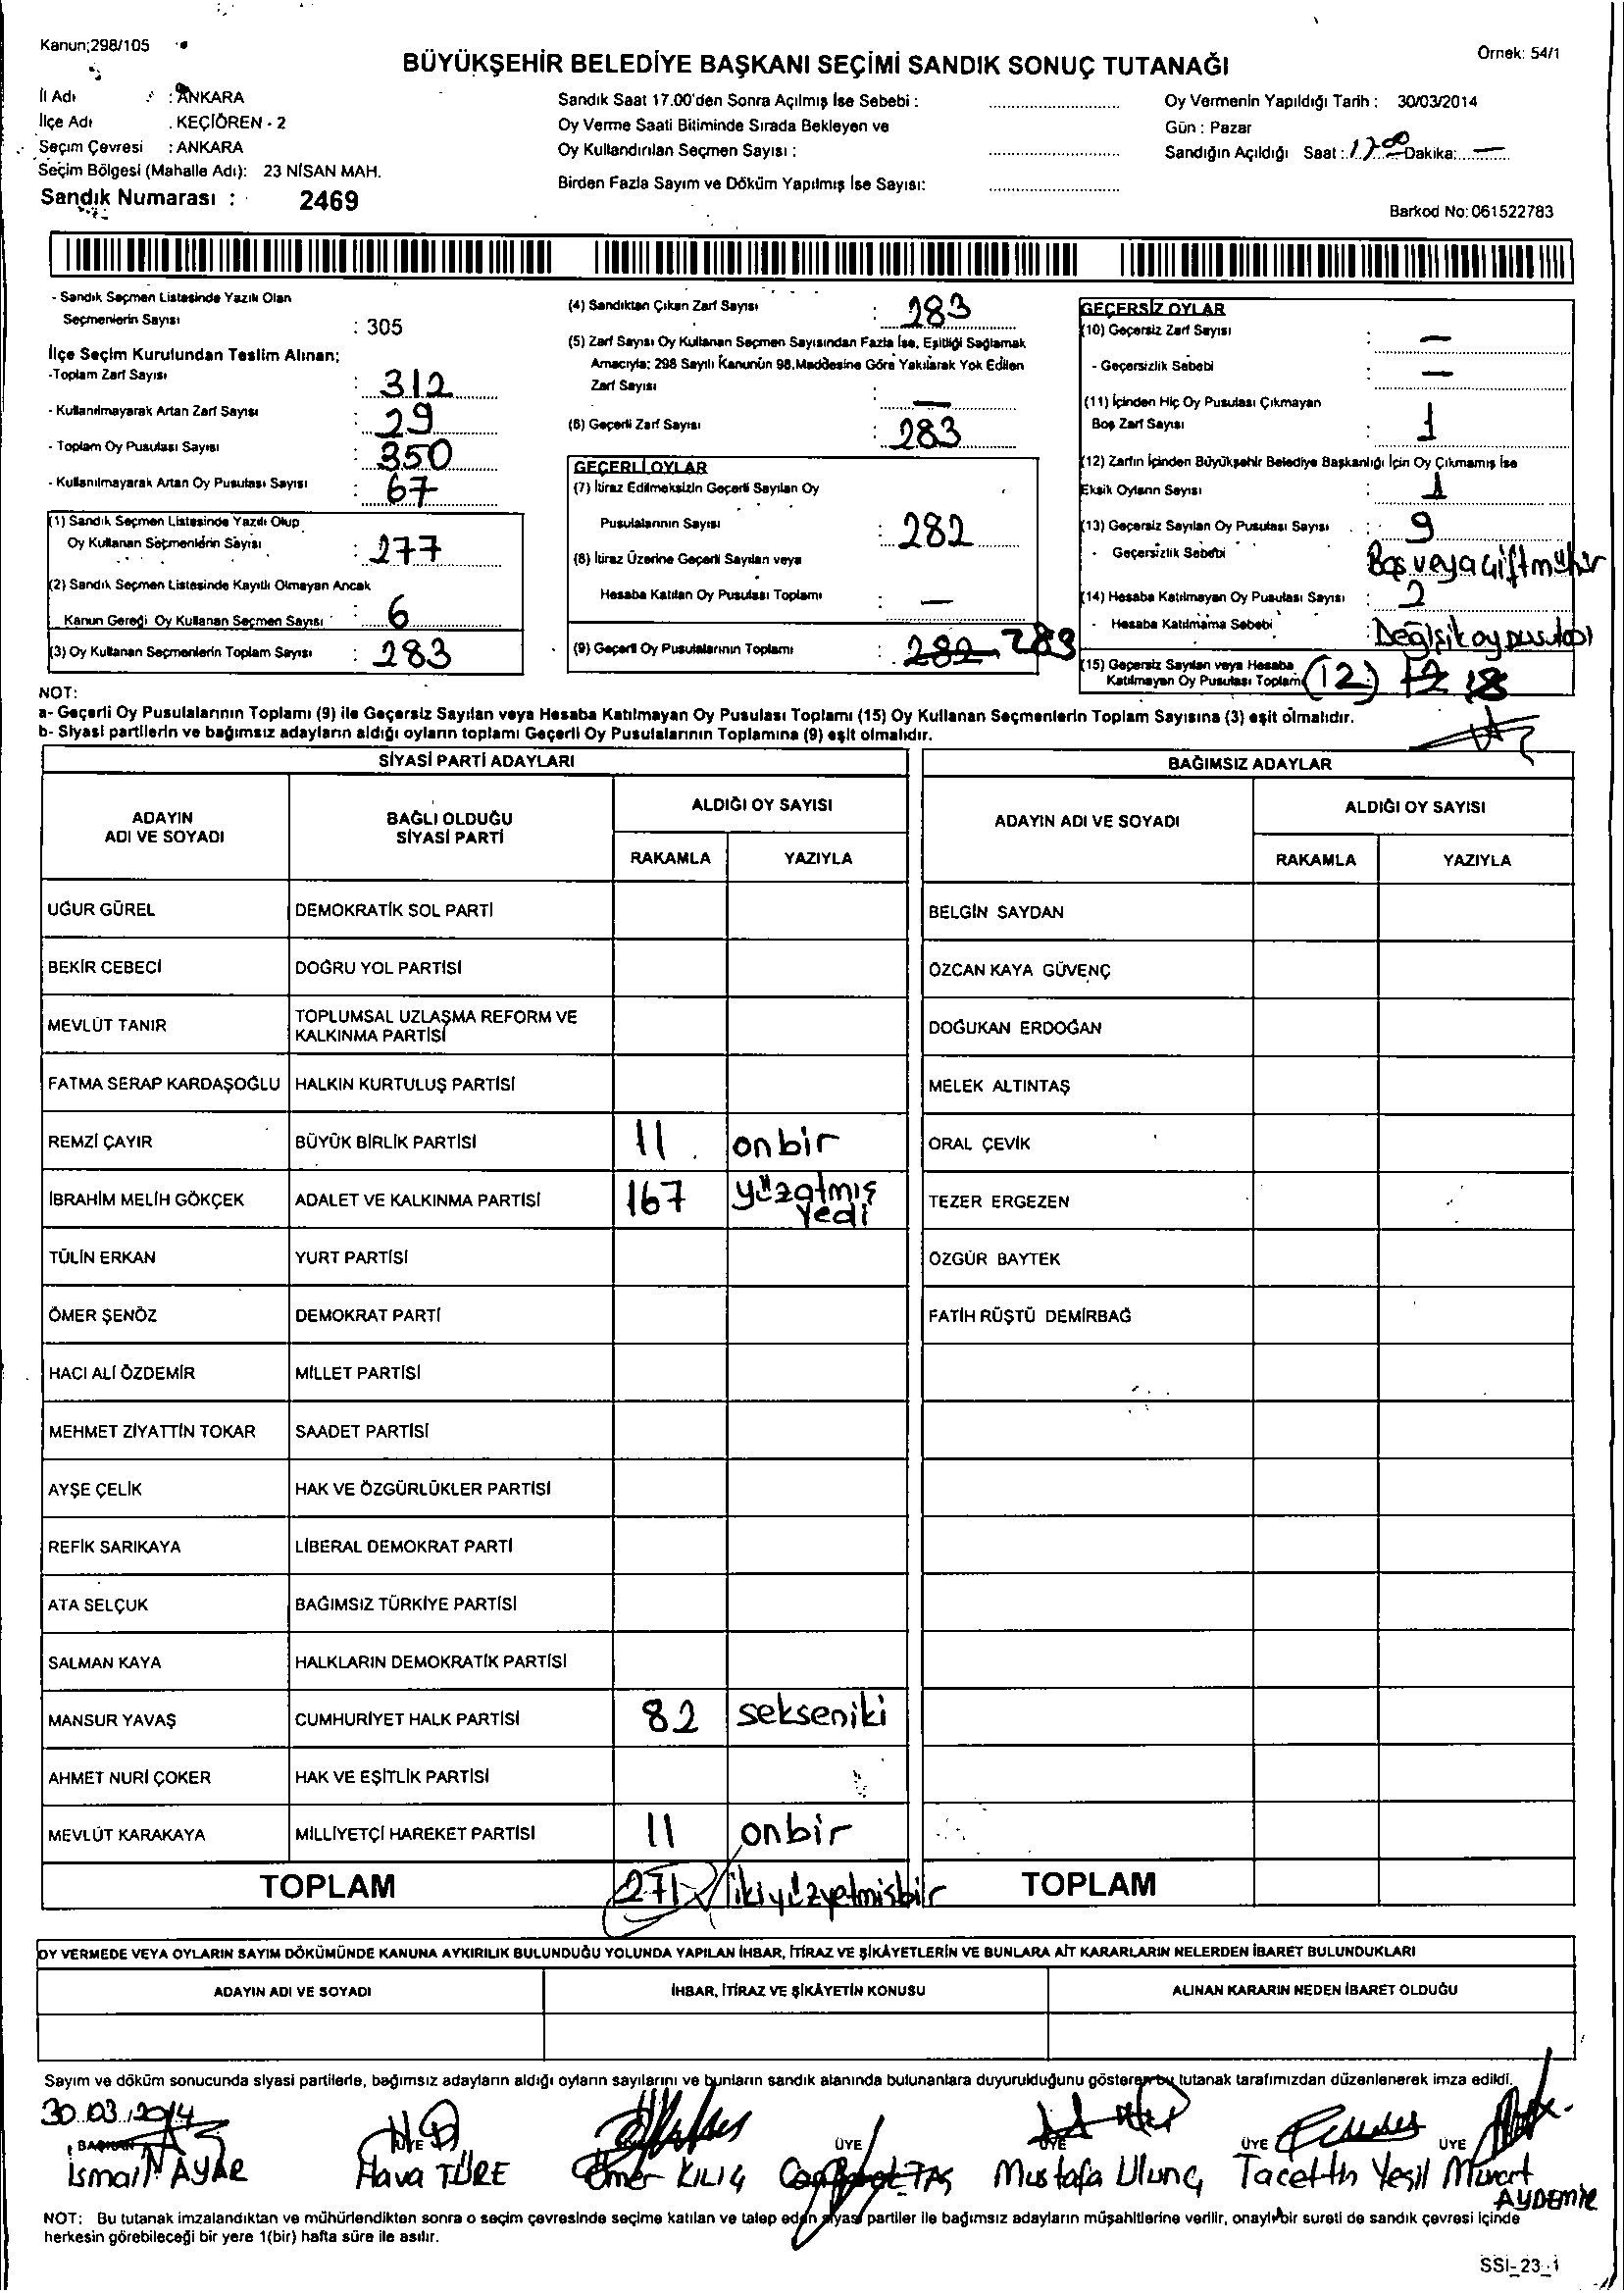 Kanun;298/105
Örnek: 54/1
BÜYÜKŞEHİR BELEDİYE BAŞKANI SEÇİMİ SANDIK SONUÇ TUTANAĞI
İl Adı : ANKARA
İlçe Adı : KEÇİÖREN - 2
Seçim Çevresi : ANKARA
Seçim Bölgesi (Mahalle Adı): 23 NİSAN MAH.
Sandık Numarası : 2469
Sandık Saat 17.00'den Sonra Açılmış İse Sebebi :
Oy Verme Saati Bitiminde Sırada Bekleyen ve
Oy Kullandırılan Seçmen Sayısı :
Birden Fazla Sayım ve Döküm Yapılmış İse Sayısı:
Oy Vermenin Yapıldığı Tarih : 30/03/2014
Gün : Pazar
Sandığın Açıldığı Saat : 17.00 Dakika: —
Barkod No: 061522783
- Sandık Seçmen Listesinde Yazılı Olan
Seçmenlerin Sayısı : 305
İlçe Seçim Kurulundan Teslim Alınan;
-Toplam Zarf Sayısı : 312
- Kullanılmayarak Artan Zarf Sayısı : 29
- Toplam Oy Pusulası Sayısı : 350
- Kullanılmayarak Artan Oy Pusulası Sayısı : 67
(1) Sandık Seçmen Listesinde Yazılı Olup
Oy Kullanan Seçmenlerin Sayısı : 277
(2) Sandık Seçmen Listesinde Kayıtlı Olmayan Ancak
Kanun Gereği Oy Kullanan Seçmen Sayısı : 6
(3) Oy Kullanan Seçmenlerin Toplam Sayısı : 283
(4) Sandıktan Çıkan Zarf Sayısı : 283
(5) Zarf Sayısı Oy Kullanan Seçmen Sayısından Fazla İse, Eşitliği Sağlamak
Amacıyla; 298 Sayılı Kanunun 98.Maddesine Göre Yakılarak Yok Edilen
Zarf Sayısı : —
(6) Geçerli Zarf Sayısı : 283
GEÇERLİ OYLAR
(7) İtiraz Edilmeksizin Geçerli Sayılan Oy
Pusulalarının Sayısı : 282
(8) İtiraz Üzerine Geçerli Sayılan veya
Hesaba Katılan Oy Pusulası Toplamı : —
(9) Geçerli Oy Pusulalarının Toplamı : 282 283
GEÇERSİZ OYLAR
(10) Geçersiz Zarf Sayısı : —
- Geçersizlik Sebebi : —
(11) İçinden Hiç Oy Pusulası Çıkmayan
Boş Zarf Sayısı : 1
(12) Zarfın İçinden Büyükşehir Belediye Başkanlığı İçin Oy Çıkmamış İse
Eksik Oyların Sayısı : 1
(13) Geçersiz Sayılan Oy Pusulası Sayısı : 9
- Geçersizlik Sebebi Boş veya çift mühür
(14) Hesaba Katılmayan Oy Pusulası Sayısı : 2
- Hesaba Katılmama Sebebi : Değişik oy pusulası
(15) Geçersiz Sayılan veya Hesaba
Katılmayan Oy Pusulası Toplamı (12)
NOT:
a- Geçerli Oy Pusulalarının Toplamı (9) ile Geçersiz Sayılan veya Hesaba Katılmayan Oy Pusulası Toplamı (15) Oy Kullanan Seçmenlerin Toplam Sayısına (3) eşit olmalıdır.
b- Siyasi partilerin ve bağımsız adayların aldığı oyların toplamı Geçerli Oy Pusulalarının Toplamına (9) eşit olmalıdır.
SİYASİ PARTİ ADAYLARI
BAĞIMSIZ ADAYLAR
ADAYIN ADI VE SOYADI
BAĞLI OLDUĞU SİYASİ PARTİ
ALDIĞI OY SAYISI
RAKAMLA YAZIYLA
ADAYIN ADI VE SOYADI
ALDIĞI OY SAYISI
RAKAMLA YAZIYLA
UĞUR GÜREL DEMOKRATİK SOL PARTİ BELGİN SAYDAN
BEKİR CEBECİ DOĞRU YOL PARTİSİ ÖZCAN KAYA GÜVENÇ
MEVLÜT TANIR TOPLUMSAL UZLAŞMA REFORM VE KALKINMA PARTİSİ DOĞUKAN ERDOĞAN
FATMA SERAP KARDAŞOĞLU HALKIN KURTULUŞ PARTİSİ MELEK ALTINTAŞ
REMZİ ÇAYIR BÜYÜK BİRLİK PARTİSİ 11 onbir ORAL ÇEVİK
İBRAHİM MELİH GÖKÇEK ADALET VE KALKINMA PARTİSİ 167 yüzatmış yedi TEZER ERGEZEN
TÜLİN ERKAN YURT PARTİSİ ÖZGÜR BAYTEK
ÖMER ŞENÖZ DEMOKRAT PARTİ FATİH RÜŞTÜ DEMİRBAĞ
HACI ALİ ÖZDEMİR MİLLET PARTİSİ
MEHMET ZİYATTİN TOKAR SAADET PARTİSİ
AYŞE ÇELİK HAK VE ÖZGÜRLÜKLER PARTİSİ
REFİK SARIKAYA LİBERAL DEMOKRAT PARTİ
ATA SELÇUK BAĞIMSIZ TÜRKİYE PARTİSİ
SALMAN KAYA HALKLARIN DEMOKRATİK PARTİSİ
MANSUR YAVAŞ CUMHURİYET HALK PARTİSİ 82 sekseniki
AHMET NURİ ÇOKER HAK VE EŞİTLİK PARTİSİ
MEVLÜT KARAKAYA MİLLİYETÇİ HAREKET PARTİSİ 11 onbir
TOPLAM 271 ikiyüzyetmişbir TOPLAM
OY VERMEDE VEYA OYLARIN SAYIM DÖKÜMÜNDE KANUNA AYKIRILIK BULUNDUĞU YOLUNDA YAPILAN İHBAR, İTİRAZ VE ŞİKÂYETLERİN VE BUNLARA AİT KARARLARIN NELERDEN İBARET BULUNDUKLARI
ADAYIN ADI VE SOYADI İHBAR, İTİRAZ VE ŞİKÂYETİN KONUSU ALINAN KARARIN NEDEN İBARET OLDUĞU
Sayım ve döküm sonucunda siyasi partilerle, bağımsız adayların aldığı oyların sayılarını ve bunların sandık alanında bulunanlara duyurulduğunu gösteren bu tutanak tarafımızdan düzenlenerek imza edildi.
30.03.2014
BAŞKAN ÜYE ÜYE ÜYE ÜYE ÜYE
İsmail AYAR Hava TÜRE Ömer KILIÇ TAŞ Mustafa Ulunç Tacettin Yeşil Murat AYDEMİR
NOT: Bu tutanak imzalandıktan ve mühürlendikten sonra o seçim çevresinde seçime katılan ve talep eden siyasi partiler ile bağımsız adayların müşahitlerine verilir, onaylı bir sureti de sandık çevresi içinde
herkesin görebileceği bir yere 1(bir) hafta süre ile asılır.
SSİ_23_1